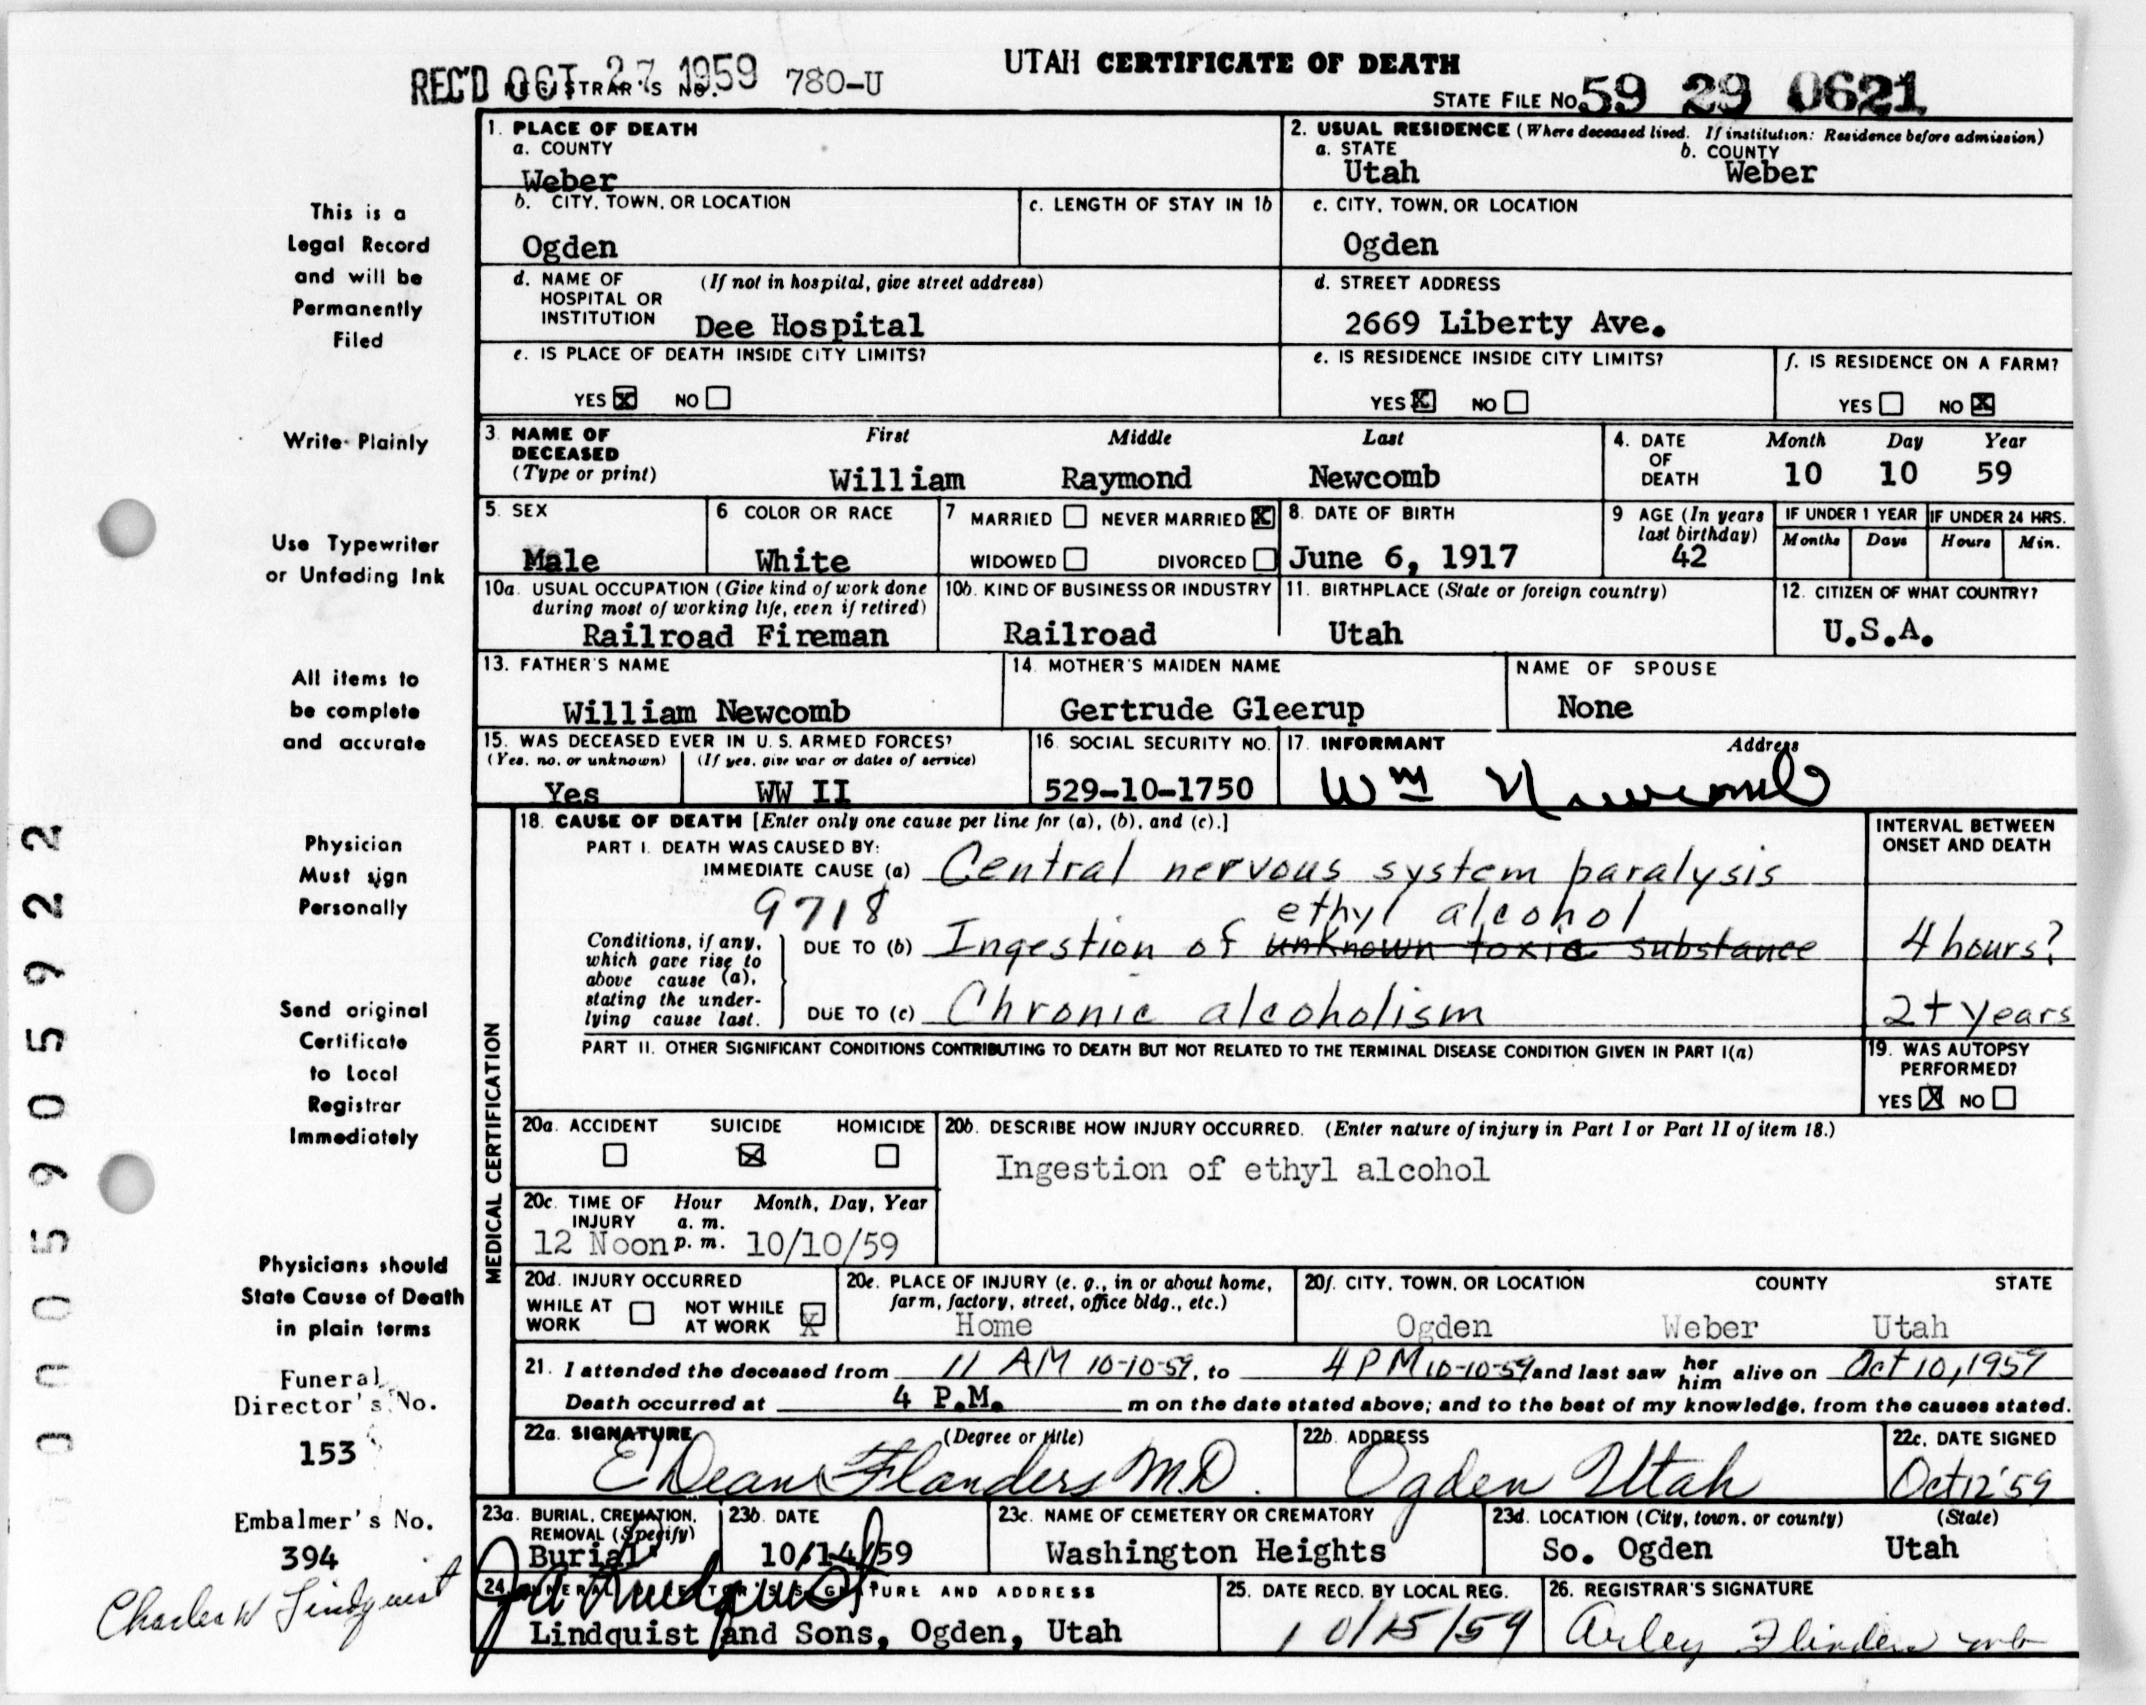 UTAH CERTIFICATE OF DEATH
REC'D OCT 27 1959 REGISTRAR'S NO. 780-U
STATE FILE NO. 59 29 0621
1. PLACE OF DEATH
a. COUNTY
Weber
2. USUAL RESIDENCE (Where deceased lived. If institution: Residence before admission)
a. STATE
Utah
b. COUNTY
Weber
b. CITY, TOWN, OR LOCATION
Ogden
c. LENGTH OF STAY IN 1b
c. CITY, TOWN, OR LOCATION
Ogden
d. NAME OF HOSPITAL OR INSTITUTION (If not in hospital, give street address)
Dee Hospital
d. STREET ADDRESS
2669 Liberty Ave.
e. IS PLACE OF DEATH INSIDE CITY LIMITS?
YES X NO
e. IS RESIDENCE INSIDE CITY LIMITS?
YES X NO
f. IS RESIDENCE ON A FARM?
YES NO X
3. NAME OF DECEASED (Type or print)
First Middle Last
William Raymond Newcomb
4. DATE OF DEATH
Month Day Year
10 10 59
5. SEX
Male
6 COLOR OR RACE
White
7 MARRIED NEVER MARRIED X
WIDOWED DIVORCED
8. DATE OF BIRTH
June 6, 1917
9 AGE (In years last birthday)
42
IF UNDER 1 YEAR
Months Days
IF UNDER 24 HRS.
Hours Min.
10a. USUAL OCCUPATION (Give kind of work done during most of working life, even if retired)
Railroad Fireman
10b. KIND OF BUSINESS OR INDUSTRY
Railroad
11. BIRTHPLACE (State or foreign country)
Utah
12. CITIZEN OF WHAT COUNTRY?
U.S.A.
13. FATHER'S NAME
William Newcomb
14. MOTHER'S MAIDEN NAME
Gertrude Gleerup
NAME OF SPOUSE
None
15. WAS DECEASED EVER IN U. S. ARMED FORCES?
(Yes, no, or unknown) (If yes, give war or dates of service)
Yes WW II
16. SOCIAL SECURITY NO.
529-10-1750
17. INFORMANT Address
Wm Newcomb
18. CAUSE OF DEATH [Enter only one cause per line for (a), (b), and (c).]
PART I. DEATH WAS CAUSED BY:
IMMEDIATE CAUSE (a) Central nervous system paralysis
9718
Conditions, if any, which gave rise to above cause (a), stating the underlying cause last.
ethyl alcohol
DUE TO (b) Ingestion of unknown toxic substance
DUE TO (c) Chronic alcoholism
INTERVAL BETWEEN ONSET AND DEATH
4 hours?
2+ years
PART II. OTHER SIGNIFICANT CONDITIONS CONTRIBUTING TO DEATH BUT NOT RELATED TO THE TERMINAL DISEASE CONDITION GIVEN IN PART I(a)
19. WAS AUTOPSY PERFORMED?
YES X NO
MEDICAL CERTIFICATION
20a. ACCIDENT SUICIDE X HOMICIDE
20b. DESCRIBE HOW INJURY OCCURRED. (Enter nature of injury in Part I or Part II of item 18.)
Ingestion of ethyl alcohol
20c. TIME OF INJURY Hour a. m. p. m. Month, Day, Year
12 Noon 10/10/59
20d. INJURY OCCURRED
WHILE AT WORK NOT WHILE AT WORK X
20e. PLACE OF INJURY (e. g., in or about home, farm, factory, street, office bldg., etc.)
Home
20f. CITY, TOWN, OR LOCATION COUNTY STATE
Ogden Weber Utah
21. I attended the deceased from 11 AM 10-10-59, to 4 PM 10-10-59 and last saw her him alive on Oct 10, 1959
Death occurred at 4 P.M. m on the date stated above; and to the best of my knowledge, from the causes stated.
22a. SIGNATURE (Degree or title)
E Dean Flanders M.D.
22b. ADDRESS
Ogden Utah
22c. DATE SIGNED
Oct 12 '59
23a. BURIAL, CREMATION, REMOVAL (Specify)
Burial
23b. DATE
10/14/59
23c. NAME OF CEMETERY OR CREMATORY
Washington Heights
23d. LOCATION (City, town, or county) (State)
So. Ogden Utah
24. FUNERAL DIRECTOR'S SIGNATURE AND ADDRESS
Lindquist and Sons, Ogden, Utah
25. DATE RECD. BY LOCAL REG.
10/15/59
26. REGISTRAR'S SIGNATURE
This is a
Legal Record
and will be
Permanently
Filed
Write Plainly
Use Typewriter
or Unfading Ink
All items to
be complete
and accurate
Physician
Must sign
Personally
Send original
Certificate
to Local
Registrar
Immediately
Physicians should
State Cause of Death
in plain terms
Funeral
Director's No.
153
Embalmer's No.
394
Charles W Lindquist